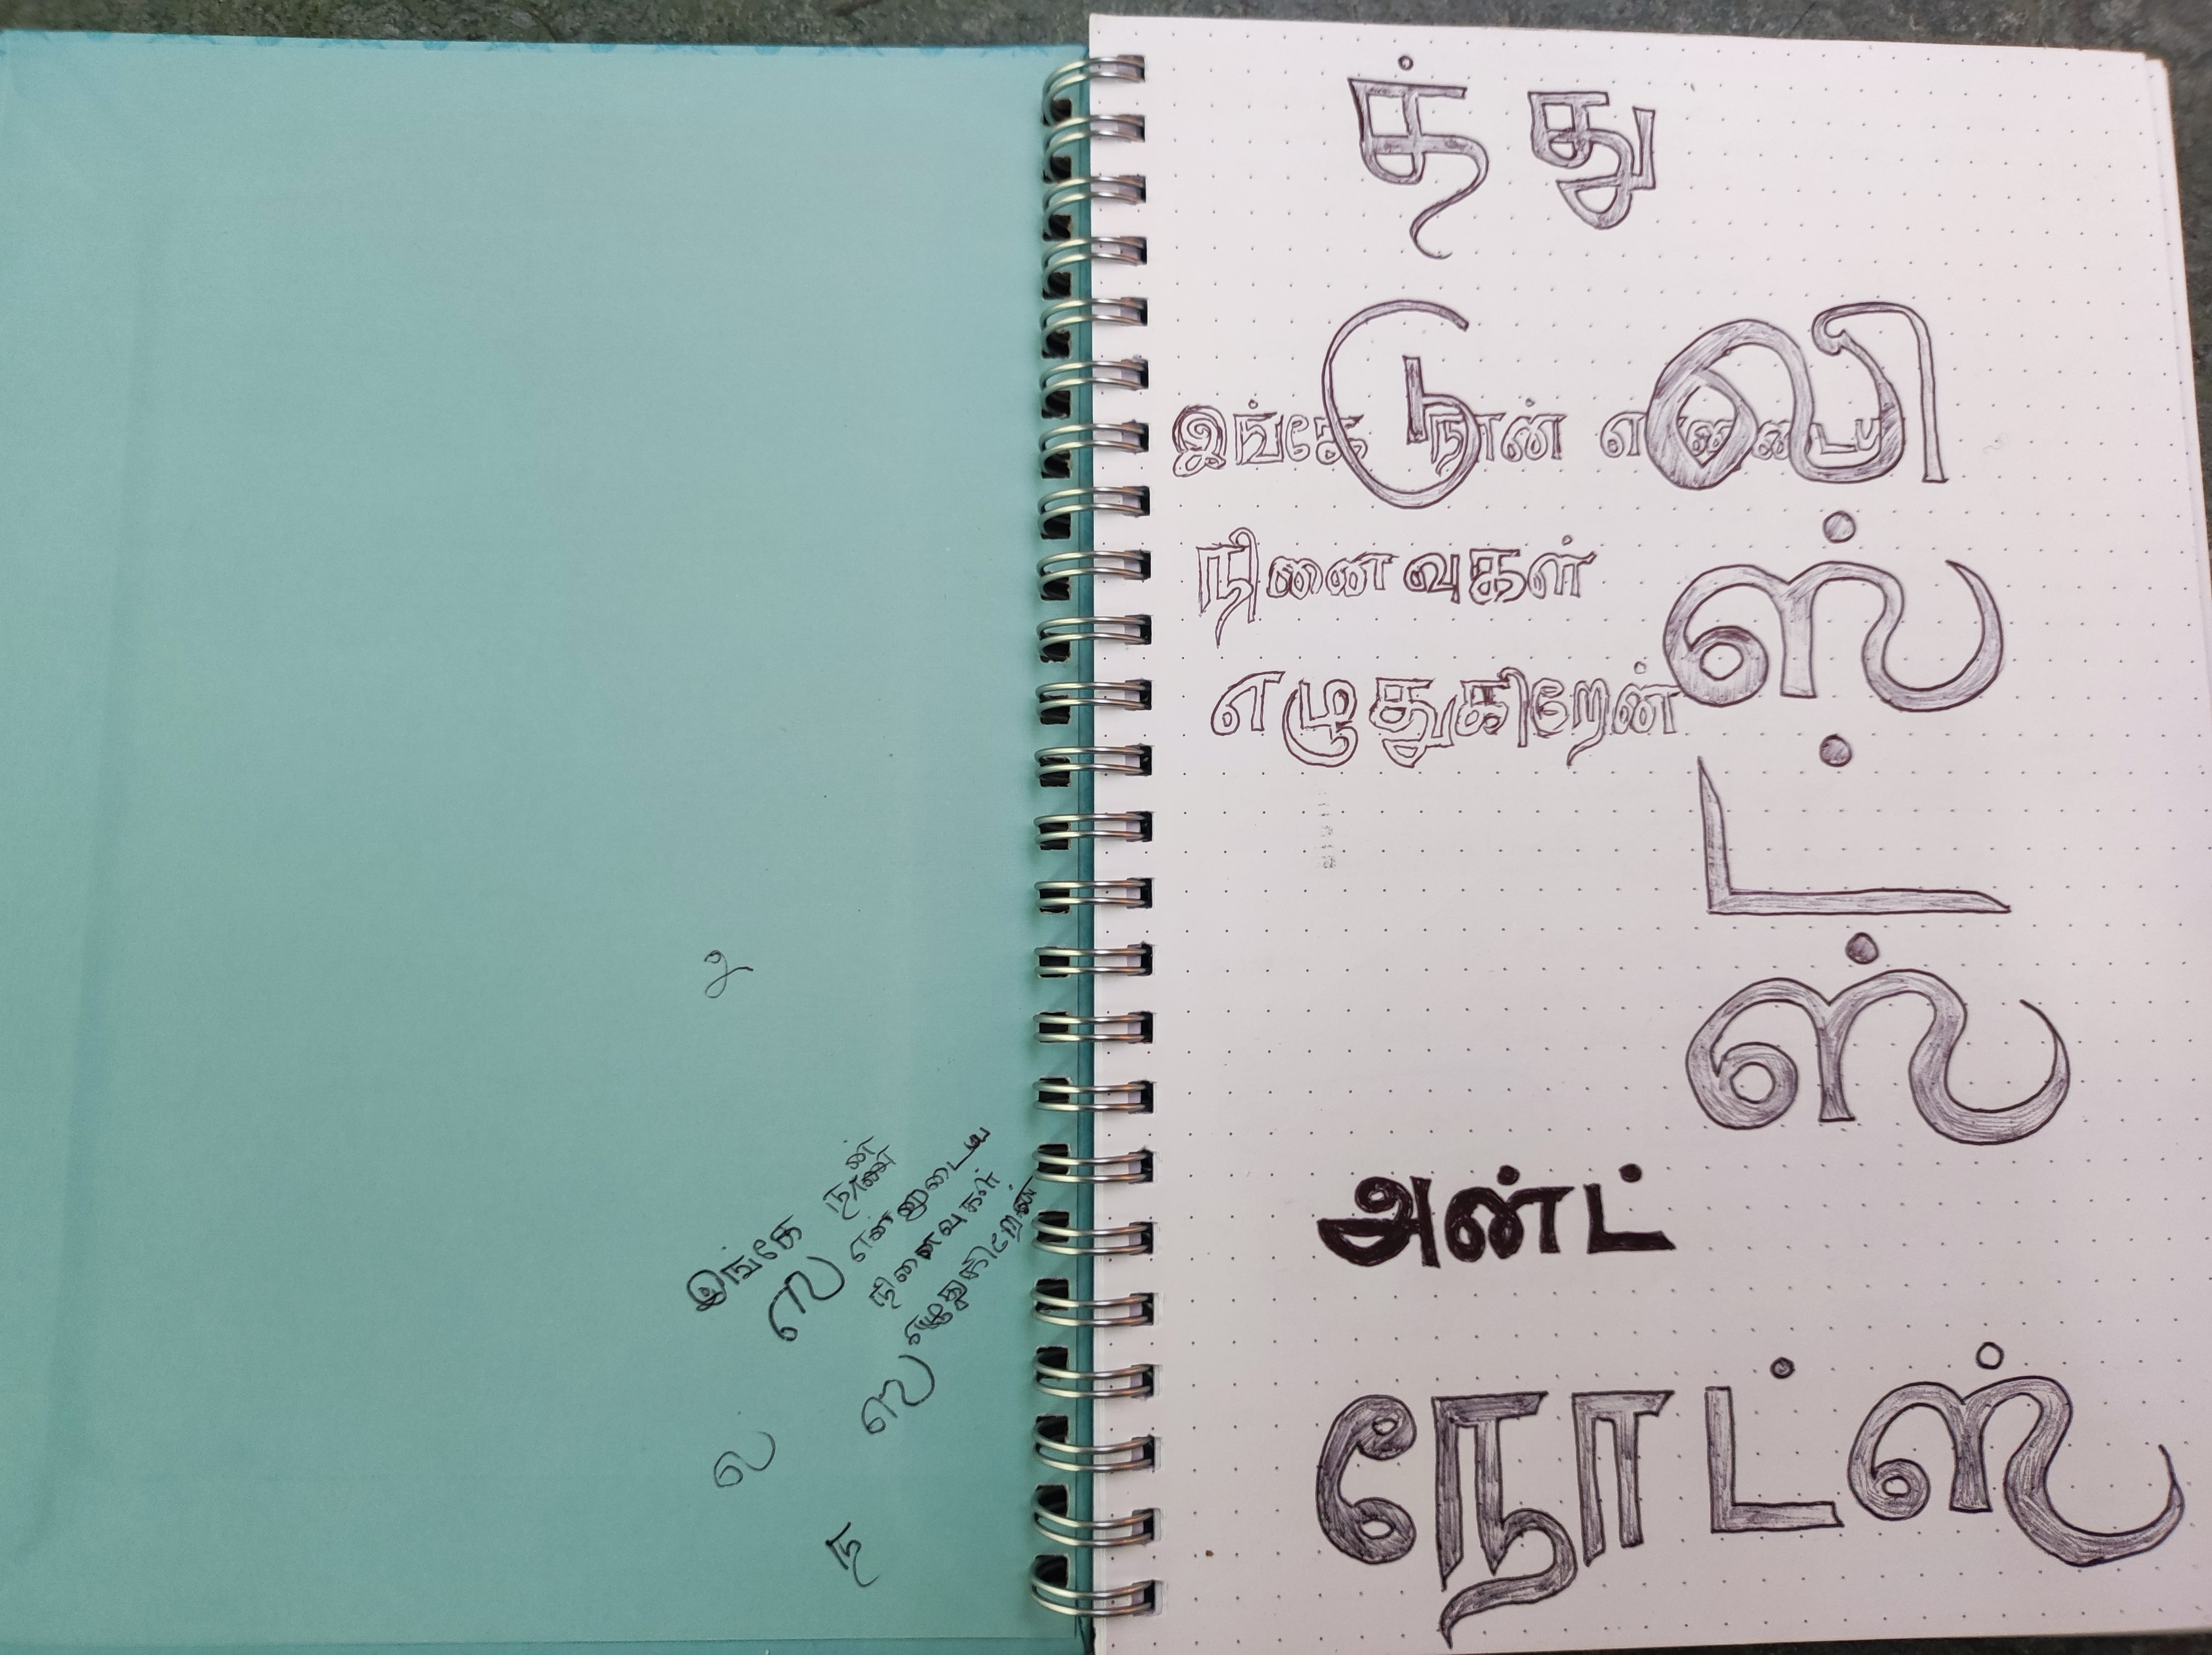 உ
இங்கே நான்
என்னுடைய
நினைவுகள்
எழுதுகிறேன்
ஸ
ஸ
ல
ந
த் து
டு லி
இங்கே நான்
நினைவுகள்
எழுதுகிறேன்
ஸ்
ட்
ஸ்
அன்ட்
நோட்ஸ்